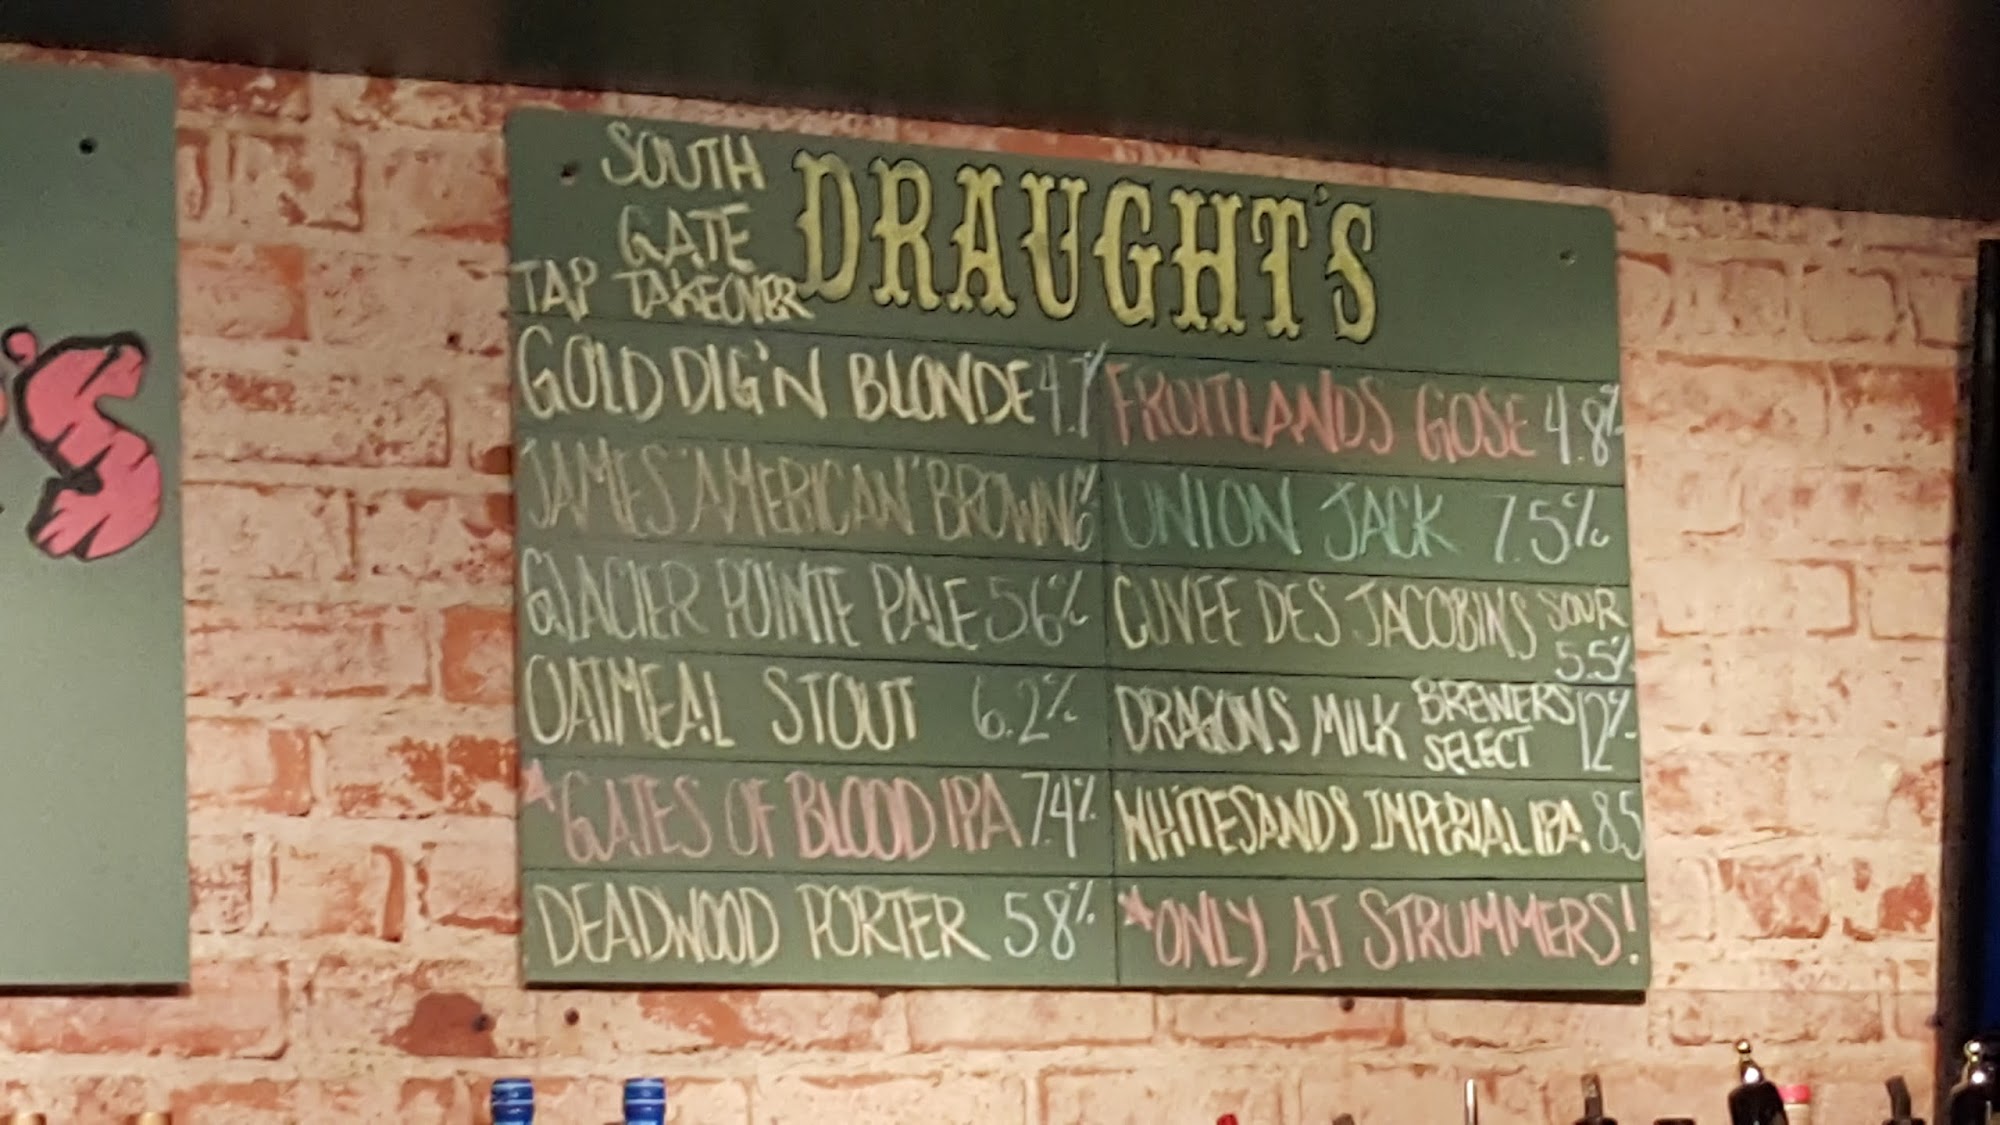 SOUTH
GATE
TAP TAKEOVER
DRAUGHT'S
GOLD DIG'N BLONDE 4.7%
JAMES "AMERICAN" BROWN 6%
GLACIER POINTE PALE 5.6%
OATMEAL STOUT 6.2%
*GATES OF BLOOD IPA 7.4%
DEADWOOD PORTER 5.8%
FRUITLANDS GOSE 4.8%
UNION JACK 7.5%
CUVEE DES JACOBINS SOUR
5.5%
DRAGONS MILK BREWERS 12%
SELECT
WHITESANDS IMPERIAL IPA 8.5
*ONLY AT STRUMMERS!
'S